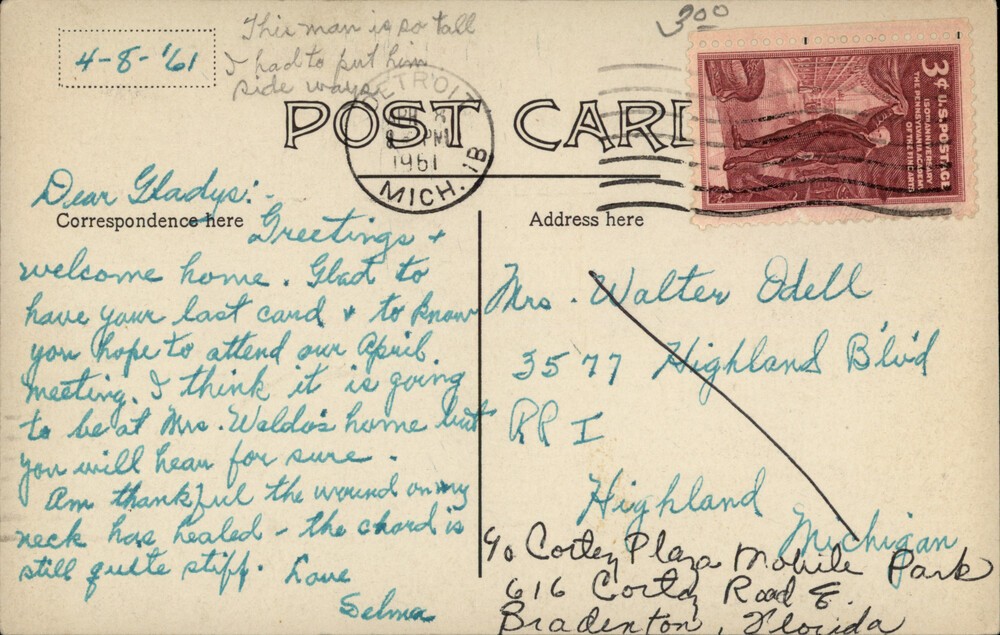 4-8-'61
This man is so tall
I had to put him
side ways
3.00
POST CARD
DETROIT
APR 8
PM
1961
MICH.
1B
3¢ U.S. POSTAGE
150TH ANNIVERSARY
THE PENNSYLVANIA ACADEMY
OF THE FINE ARTS
Dear Gladys:-
Correspondence here
Greetings +
welcome home. Glad to
have your last card + to know
you hope to attend our April.
meeting. I think it is going
to be at Mrs. Waldo's home but
you will hear for sure.
Am thankful the wound on my
neck has healed - the chord is
still quite stiff. Love
Selma
Address here
Mrs. Walter Odell
3577 Highland Blv'd
RR I
Highland
Michigan
c/o Cortez Plaza Mobile Park
616 Cortez Road E.
Bradenton, Florida